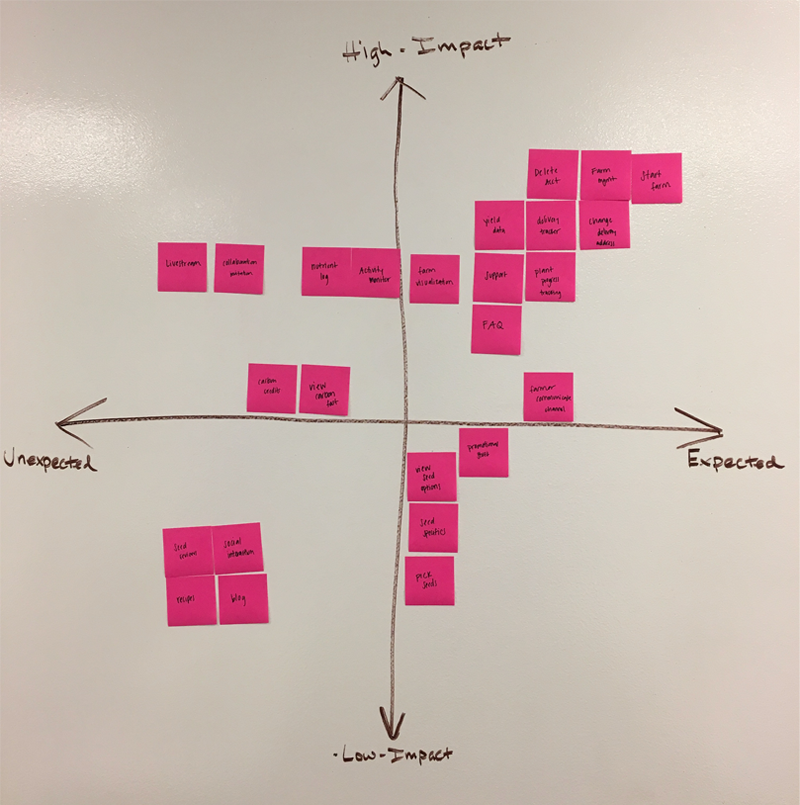 High-Impact
Delete
acct
Farm
mgmt
Start
farm
yield
data
delivery
tracker
change
delivery
address
Livestream
collaboration
nutrient
log
Activity
monitor
farm
visualization
Support
plant
progress
tracking
FAQ
carbon
credits
view
carbon
farmer
communicate
channel
Unexpected
Expected
promotional
view
seed
options
Seed
specifics
pick
seeds
Seed
social
interaction
recipes
blog
-Low-Impact